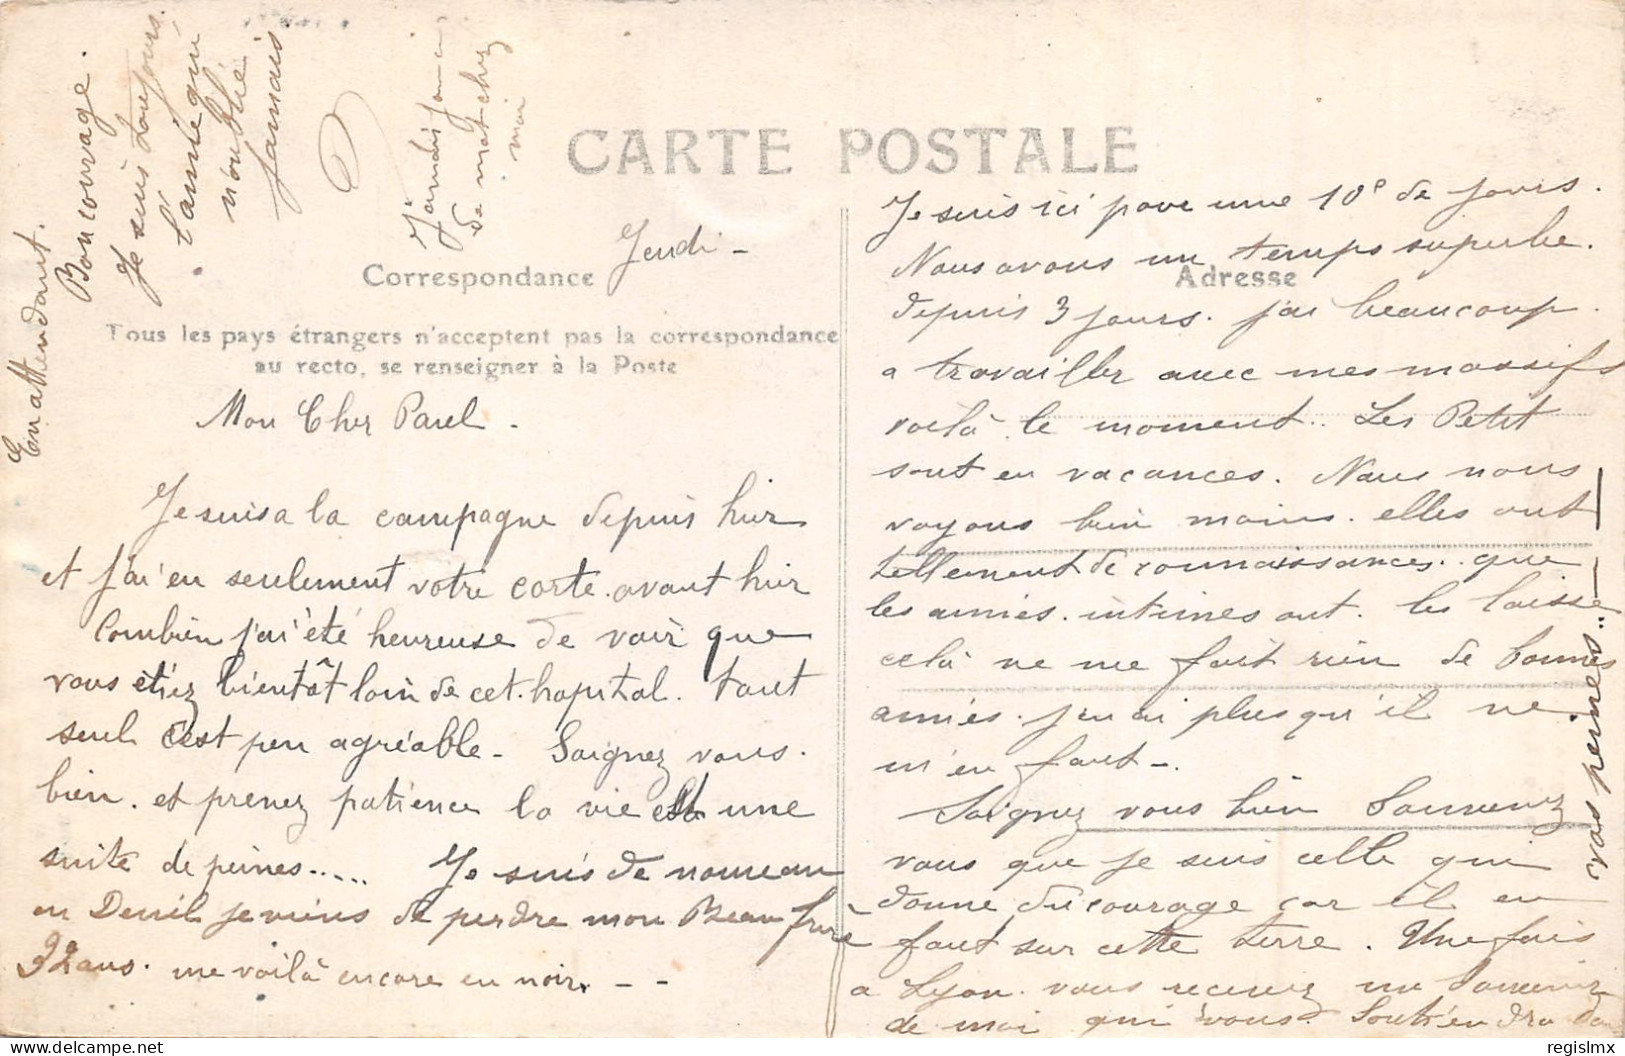 CARTE POSTALE
Correspondance
Tous les pays étrangers n'acceptent pas la correspondance
au recto, se renseigner à la Poste
Adresse
Jeudi -
Mon Cher Paul -
Je suis a la campagne depuis hier
et j'ai eu seulement votre carte avant hier
Combien j'ai été heureuse de voir que
vous étiez bientôt loin de cet hopital. tout
seul c'est peu agréable - Soignez vous.
bien. et prenez patience la vie est une
suite de peines..... Je suis de nouveau
en Deuil je viens de perdre mon Beau frère
32 ans. me voilà encore en noir. - -
Je suis ici pour une 10e de jours.
Nous avons un temps superbe.
depuis 3 jours. j'ai beaucoup.
a travailler avec mes massifs
voilà le moment.. Les Petit
sont en vacances. Nous nous
voyons bien moins. elles ont
tellement de connaissances.. que
les amies. intimes ont. les laisse
cela ne me fait rien de bonnes
amies. j'en ai plus qu'il ne
m'en faut -.
Soignez vous bien Souvenez
vous que je suis celle qui
donne du courage car il en
faut sur cette terre. Une fois
a Lyon. vous recevrez un Souvenir
de moi qui vous Soutiendra dans
vos peines..
En attendant.
Bon courage.
Je suis toujours
l'amie qui
n'oublie
jamais
J'attendis
moi
regislmx